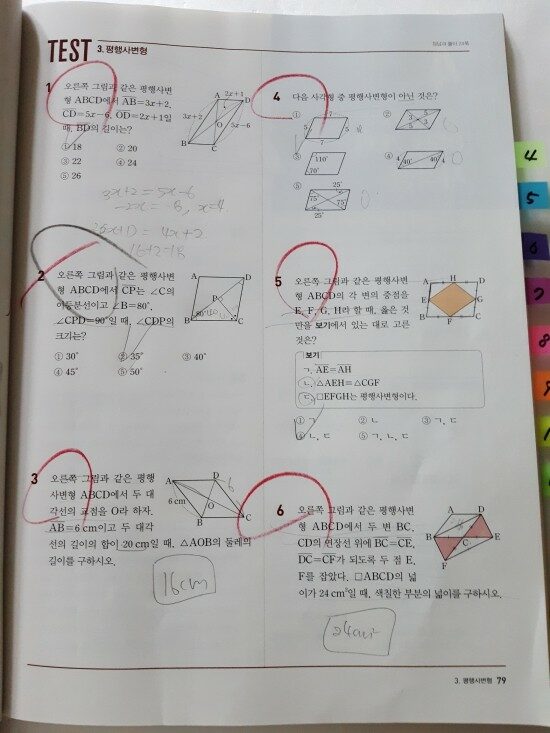 TEST 3. 평행사변형
1
오른쪽 그림과 같은 평행사변
형 ABCD에서 AB=3x+2,
CD=5x-6, OD=2x+1일
때, BD의 길이는?
① 18 ② 20
③ 22 ④ 24
⑤ 26
A 2x+1 D
3x+2 O 5x-6
B C
3x+2=5x-6
-2x=-8, x=4
4x+2
16+2=18
2
오른쪽 그림과 같은 평행사변
형 ABCD에서 CP는 ∠C의
이등분선이고 ∠B=80°,
∠CPD=90°일 때, ∠CDP의
크기는?
① 30° ② 35° ③ 40°
④ 45° ⑤ 50°
A D
P
80°
B C
3
오른쪽 그림과 같은 평행
사변형 ABCD에서 두 대
각선의 교점을 O라 하자.
AB=6 cm이고 두 대각
선의 길이의 합이 20 cm일 때, △AOB의 둘레의
길이를 구하시오.
A D
6 cm O
B C
16cm
4
다음 사각형 중 평행사변형이 아닌 것은?
① ②
7
5 5
7
3 5
5 3
③ ④
110°
70°
4 40° 40° 4
⑤
25°
75° 75°
25°
5
오른쪽 그림과 같은 평행사변
형 ABCD의 각 변의 중점을
E, F, G, H라 할 때, 옳은 것
만을 보기에서 있는 대로 고른
것은?
A H D
E G
B F C
보기
ㄱ. AE=AH
ㄴ. △AEH≡△CGF
ㄷ. □EFGH는 평행사변형이다.
① ㄱ ② ㄴ ③ ㄱ, ㄷ
④ ㄴ, ㄷ ⑤ ㄱ, ㄴ, ㄷ
6
오른쪽 그림과 같은 평행사변
형 ABCD에서 두 변 BC,
CD의 연장선 위에 BC=CE,
DC=CF가 되도록 두 점 E,
F를 잡았다. □ABCD의 넓
이가 24 cm²일 때, 색칠한 부분의 넓이를 구하시오.
A D
B C E
F
24cm²
3. 평행사변형 79
4
5
6